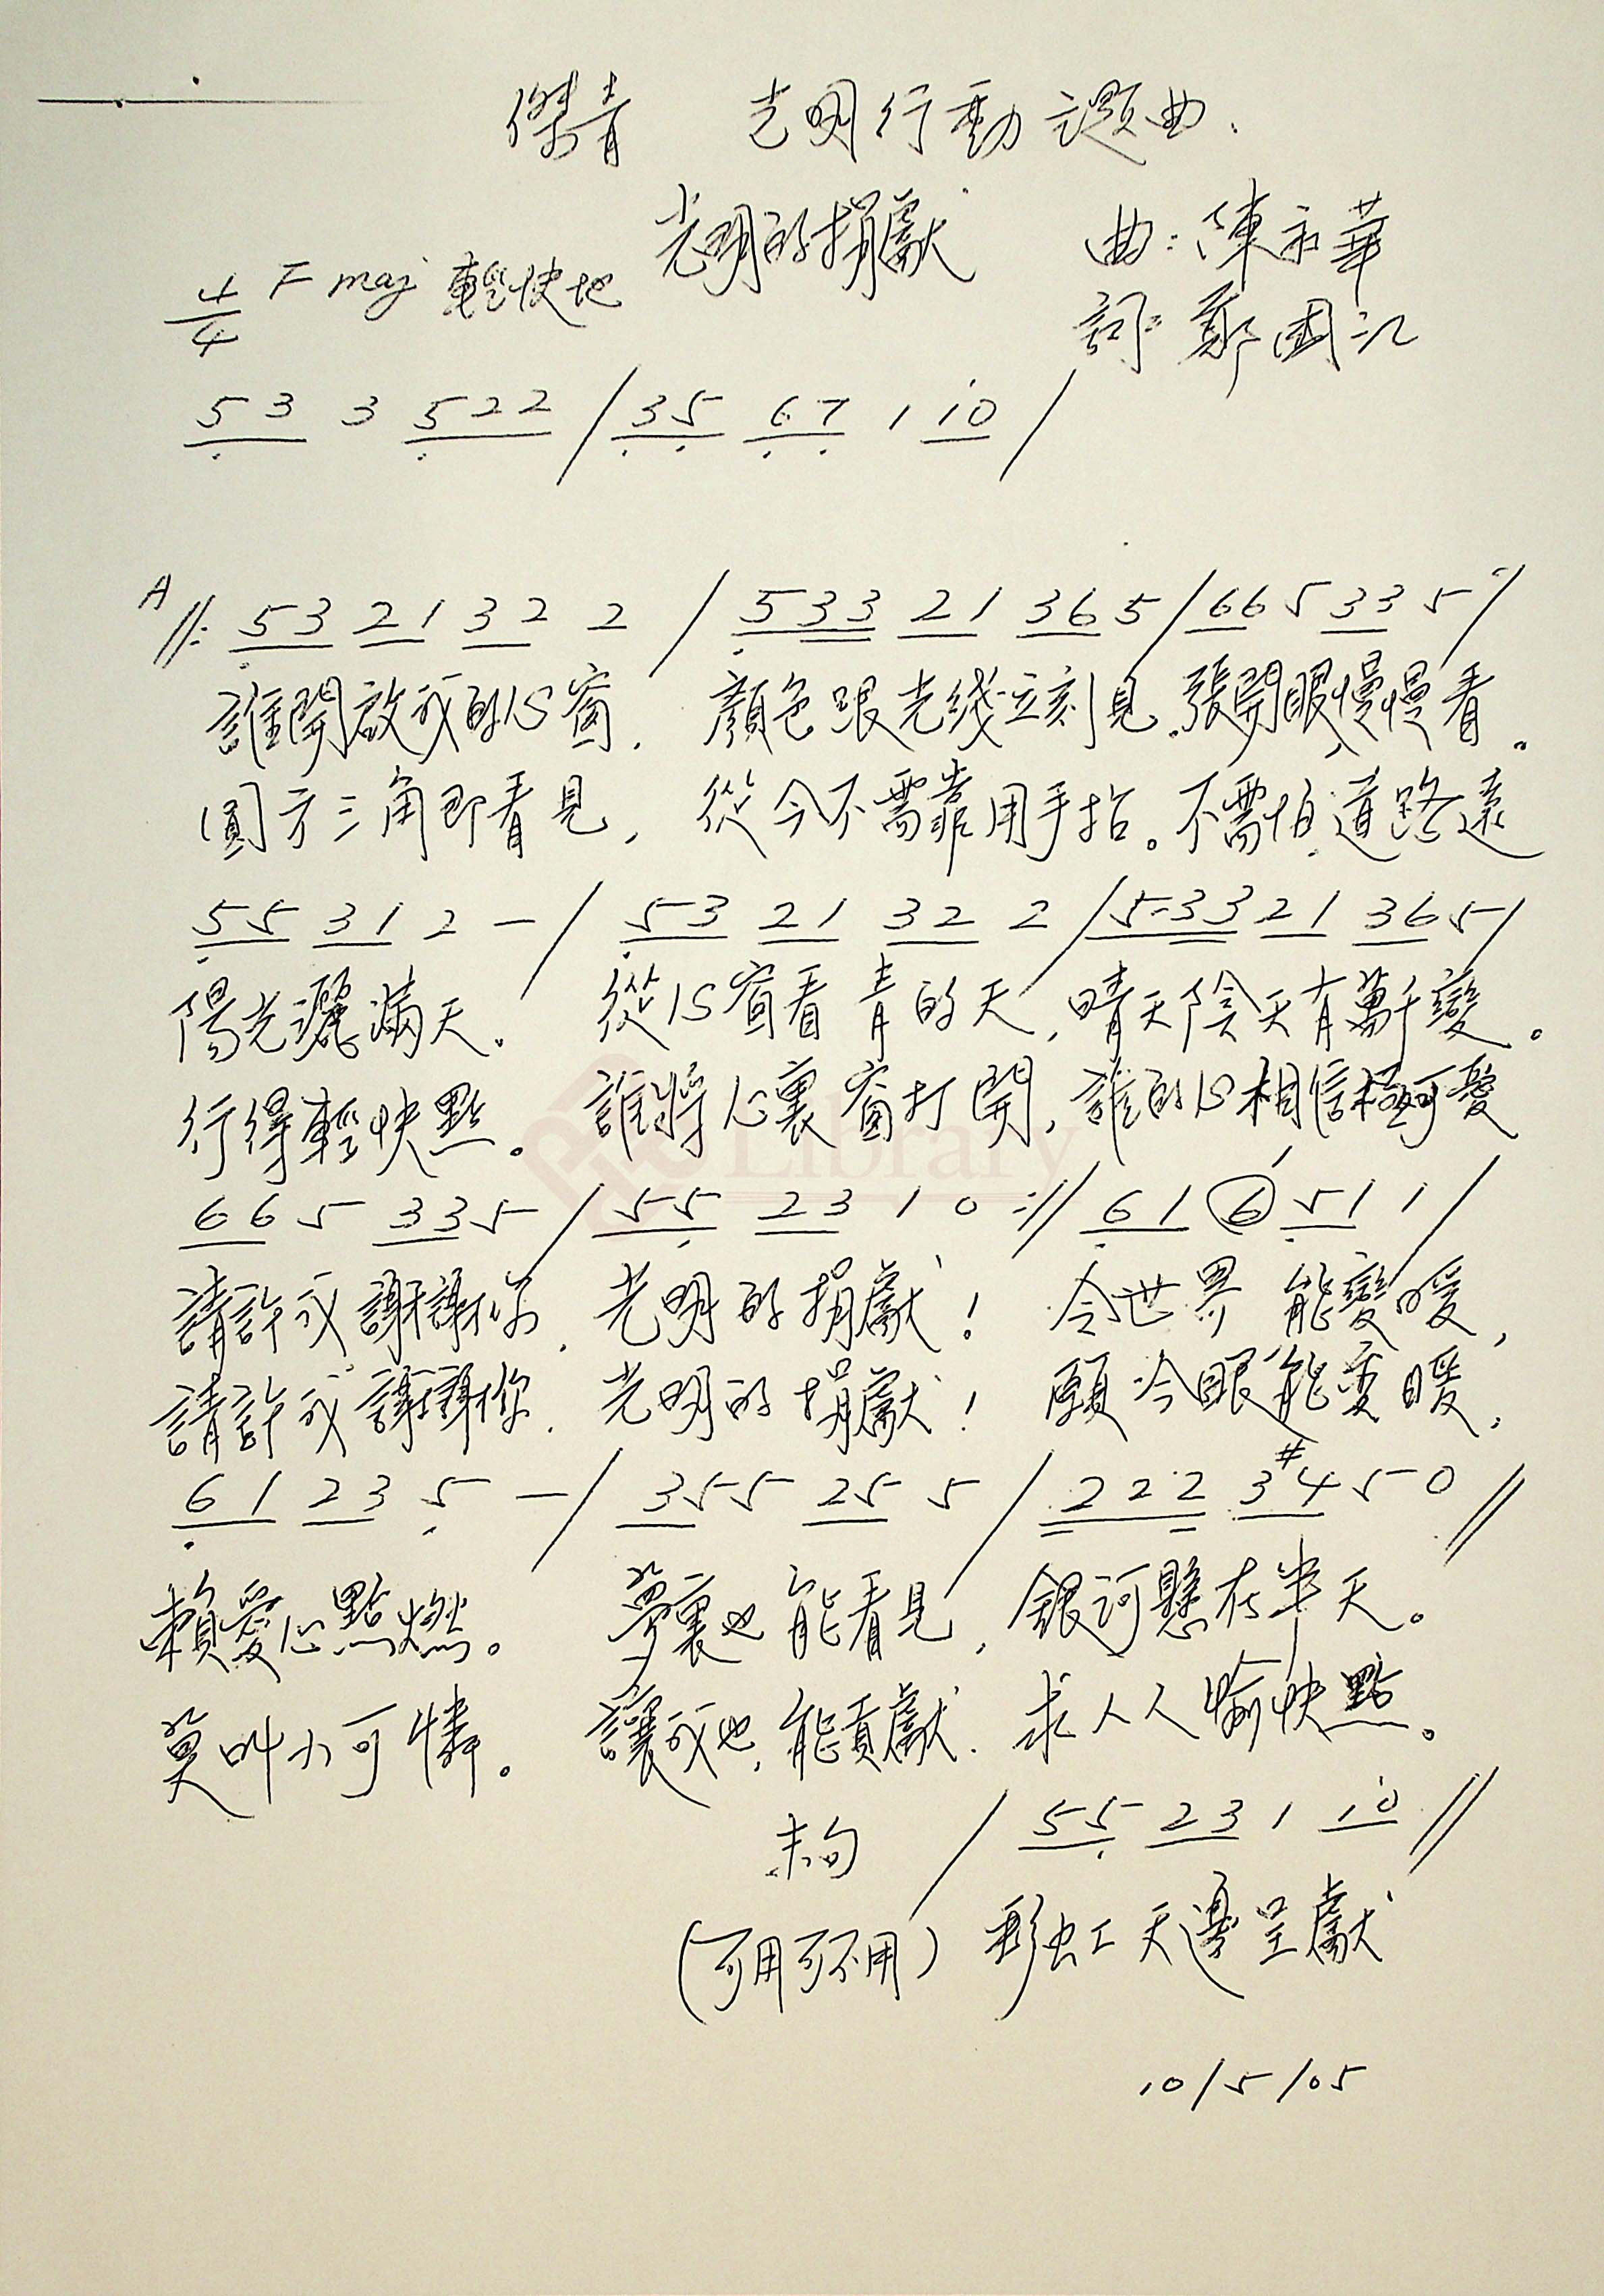 傑青 光明行動主題曲.
光明的捐獻 曲:陳永華
4/4 F maj 輕快地 詞:鄭國江
53 3 522 / 35 67 1 10 /
A //: 53 21 32 2 / 533 21 36 5 / 66 5 33 5 /
誰開啟我的心窗, 顏色跟光綫立刻見。張開眼,慢慢看。
圓方三角即看見, 從今不需靠用手指。不需怕,道路遠
55 31 2 – / 53 21 32 2 / 5·33 21 36 5 /
陽光灑滿天。 從心窗看青的天,晴天陰天有萬千變。
行得輕快點。 誰將心裏窗打開,誰的心相信極可愛
66 5 33 5 / 55 23 1 0 :// 61 6 51 1 /
請許我謝謝你, 光明的捐獻! 令世界 能變暖,
請許我謝謝你, 光明的捐獻! 願冷眼能變暖,
61 23 5 – / 355 25 5 / 222 3#4 5 0 //
賴愛心點燃。 夢裏也能看見,銀河懸在半天。
莫叫小可憐。 讓我也,能貢獻. 求人人愉快點。
末句 / 55 23 1 10 //
(可用可不用) 彩虹天邊呈獻
10/5/05
Library